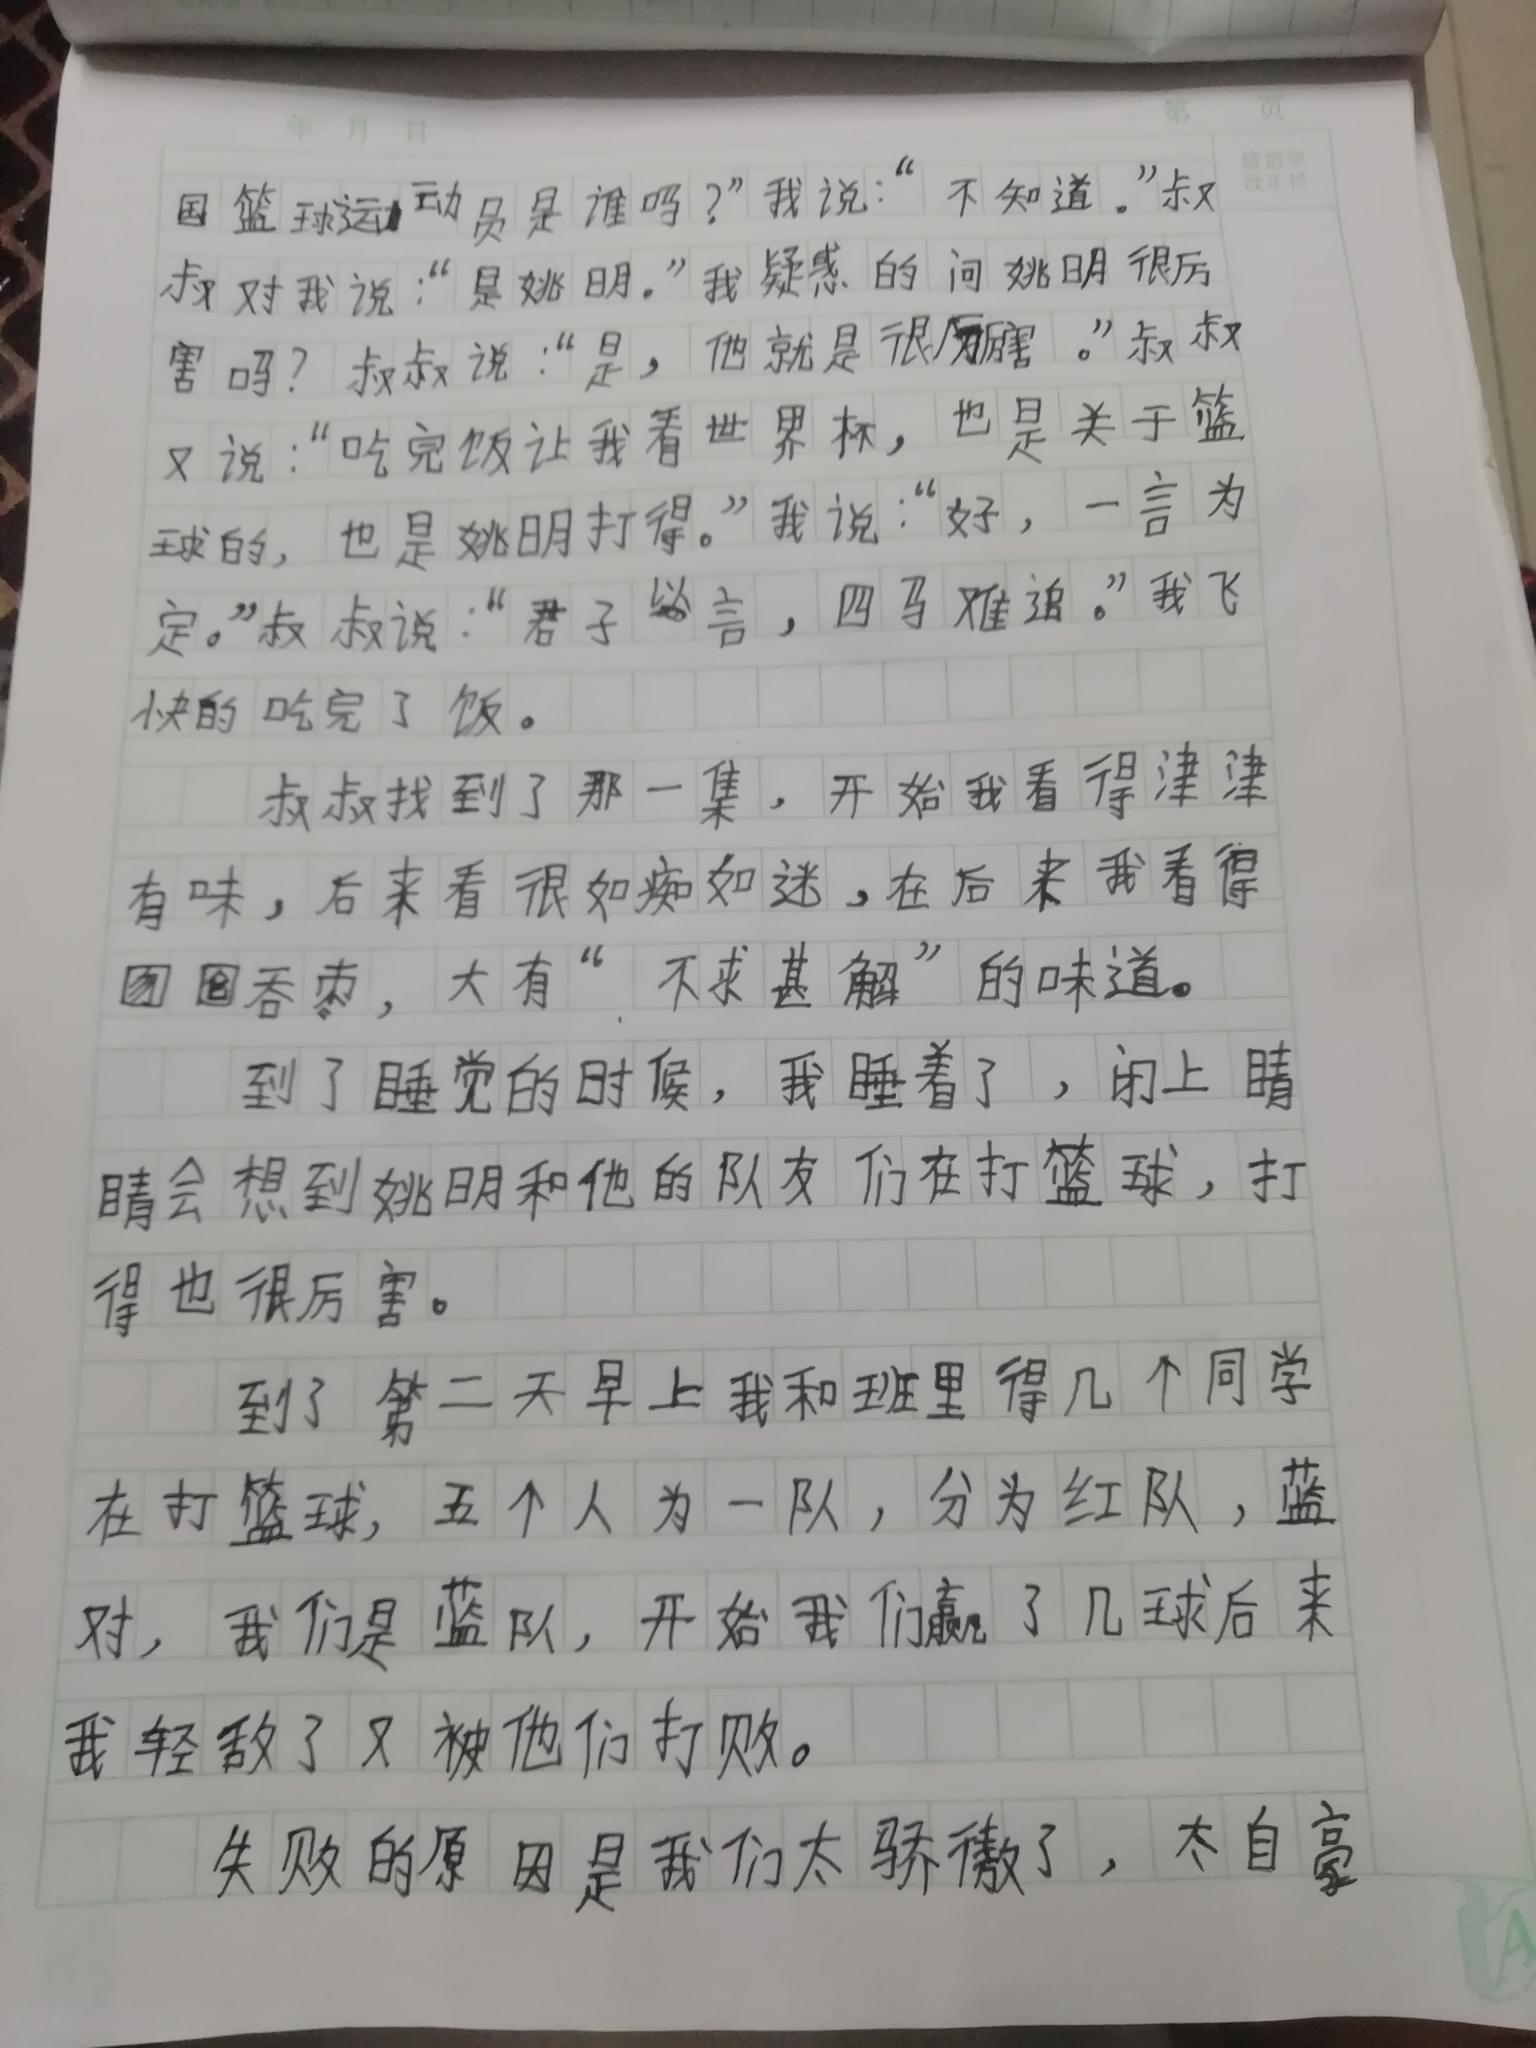 年 月 日
第 页
国篮球运动员是谁吗？”我说：“不知道。”叔
叔对我说：“是姚明。”我疑惑的问姚明很厉
害吗？叔叔说：“是，他就是很厉害。”叔叔
又说：“吃完饭让我看世界杯，也是关于篮
球的，也是姚明打得。”我说：“好，一言为
定。”叔叔说：“君子 言，四马难追。”我飞
快的吃完了饭。
叔叔找到了那一集，开始我看得津津
有味，后来看很如痴如迷，在后来我看得
囫囵吞枣，大有“不求甚解”的味道。
到了睡觉的时候，我睡着了，闭上睛
睛会想到姚明和他的队友们在打篮球，打
得也很厉害。
到了第二天早上我和班里得几个同学
在打篮球，五个人为一队，分为红队，蓝
对，我们是蓝队，开始我们赢了几球后来
我轻敌了又被他们打败。
失败的原因是我们太骄傲了，太自豪